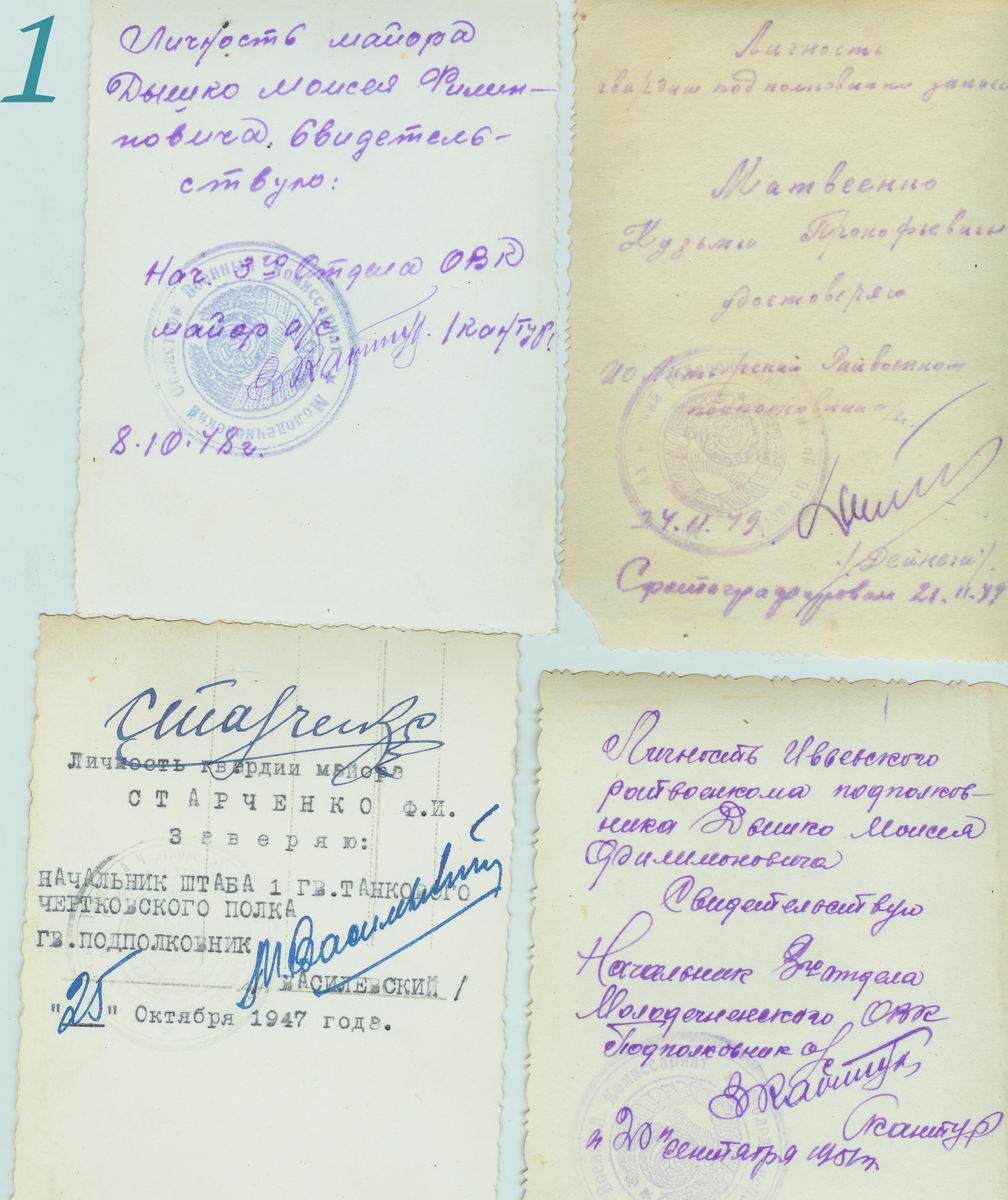 1
Личность майора
Дышко Моисея Филип-
повича, свидетель-
ствую:
Нач. 3го Отдела ОВК
майор а/с. /Кантур/
Молодечненский Областной Военный Комиссариат
8.10.48г.
Личность
гвардии подполковника запаса
Матвеенко
Кузьмы Прокофьевича
удостоверяю
ио Райвоенком
подполковник а/с.
24.11.49.
/Дейнега/
Сфотографирован 21.11.49
Старченко
Личность гвардии майора
СТАРЧЕНКО Ф.И.
Заверяю:
НАЧАЛЬНИК ШТАБА 1 ГВ.ТАНКОВОГО
ЧЕРТКОВСКОГО ПОЛКА
ГВ.ПОДПОЛКОВНИК
М Василевский
/ВАСИЛЕВСКИЙ /
"25" Октября 1947 года.
Личность Ивьевского
райвоенкома подполков-
ника Дышко Моисея
Филимоновича
Свидетельствую
Начальник 3го отдела
Молодечненского ОВК
Подполковник а/с
Кантур
"20" сентября 1951г.
Военный Комиссариат